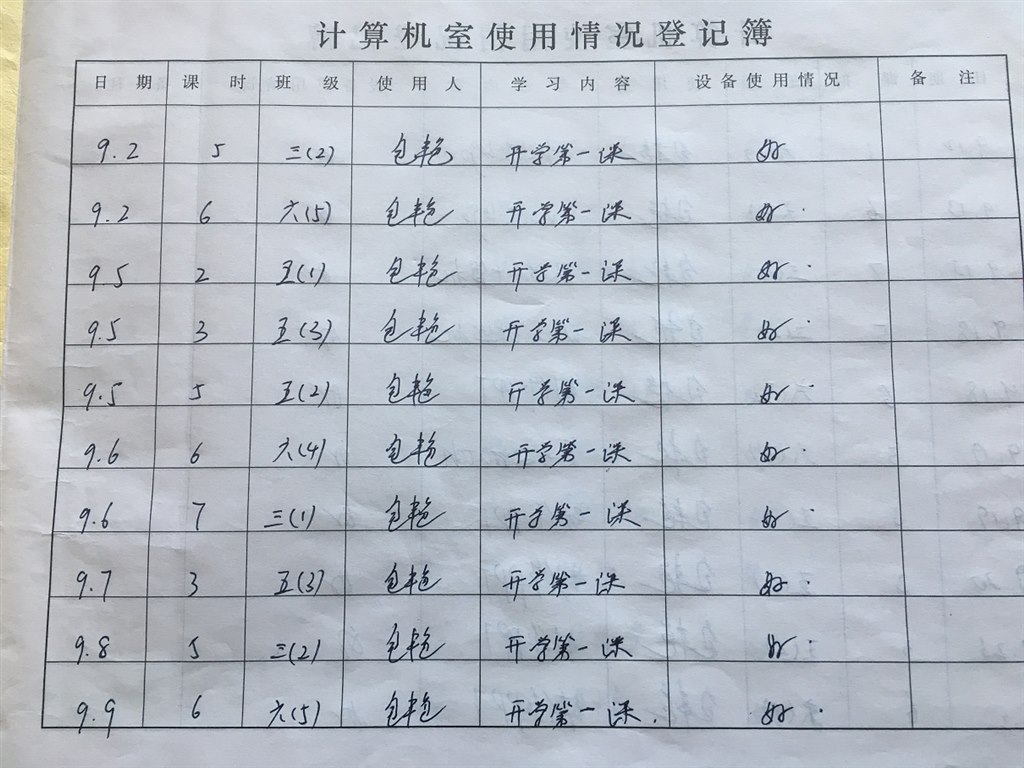 计算机室使用情况登记簿
日期 课时 班级 使用人 学习内容 设备使用情况 备注
9.2 5 三(2) 包艳 开学第一课 好
9.2 6 六(5) 包艳 开学第一课 好
9.5 2 五(1) 包艳 开学第一课 好
9.5 3 五(3) 包艳 开学第一课 好
9.5 5 五(2) 包艳 开学第一课 好
9.6 6 六(4) 包艳 开学第一课 好
9.6 7 三(1) 包艳 开学第一课 好
9.7 3 五(3) 包艳 开学第一课 好
9.8 5 三(2) 包艳 开学第一课 好
9.9 6 六(5) 包艳 开学第一课. 好